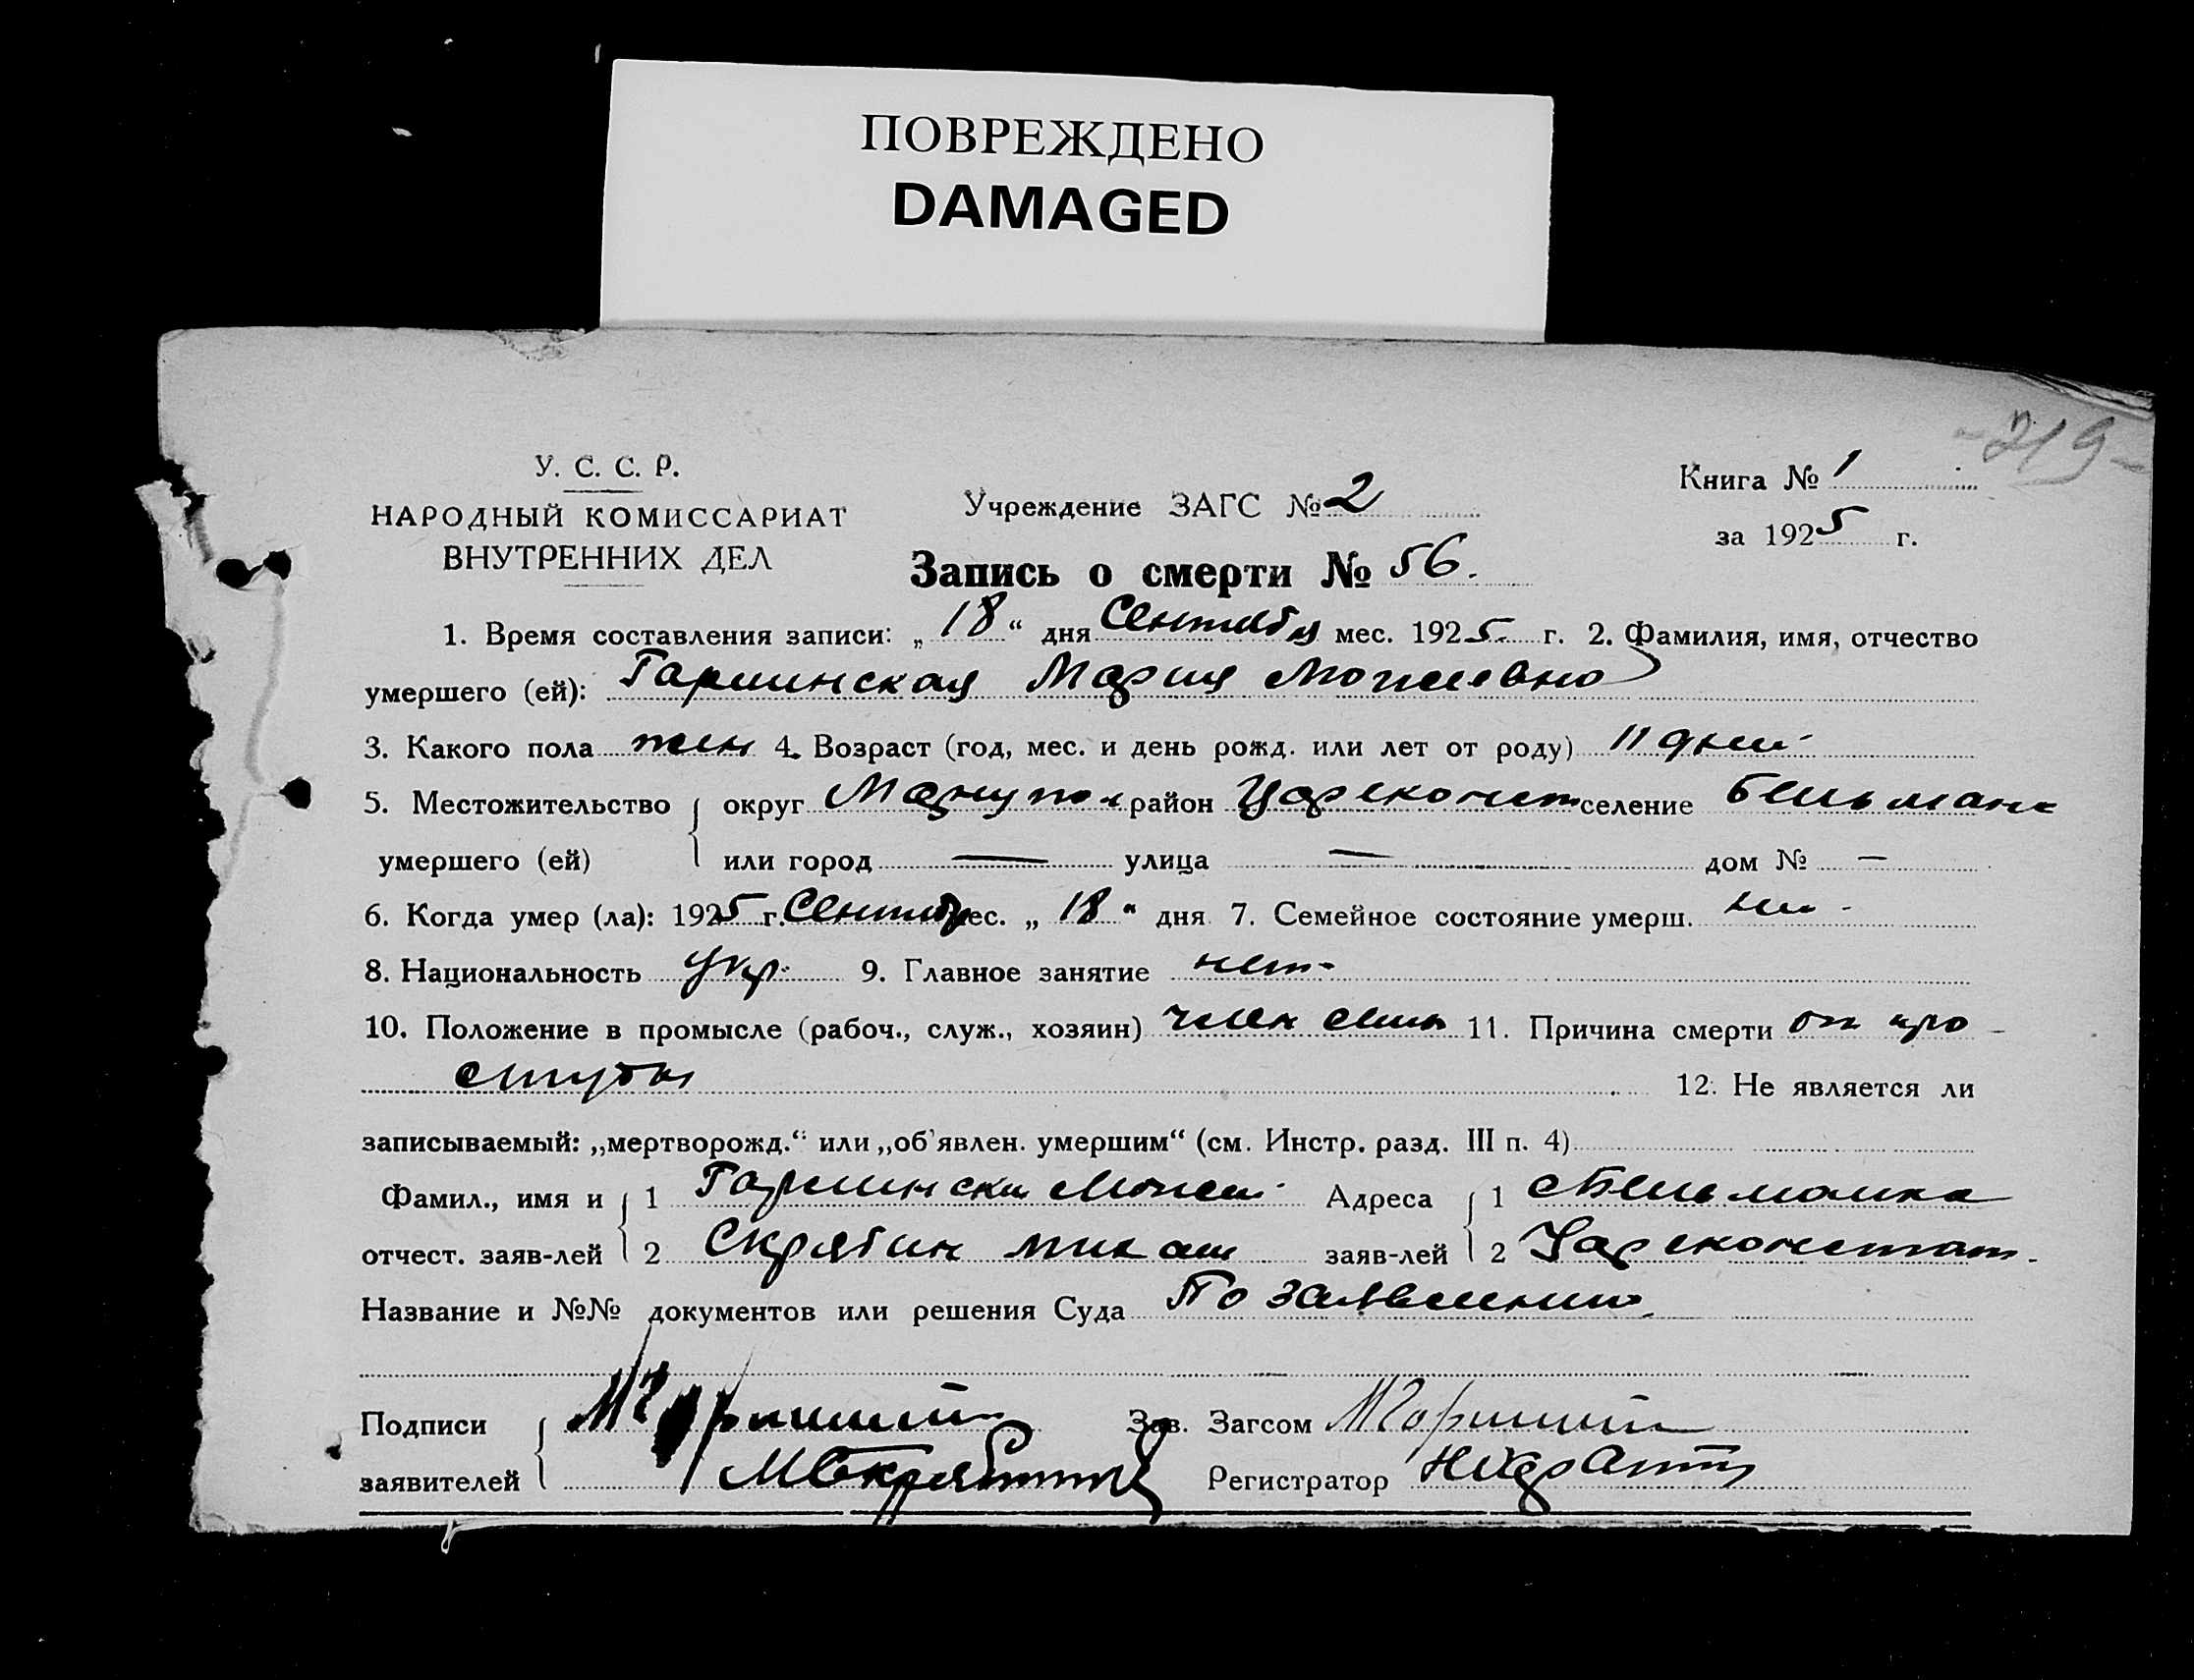 ПОВРЕЖДЕНО
DAMAGED
-219-
У. С. С. Р.
НАРОДНЫЙ КОМИССАРИАТ
ВНУТРЕННИХ ДЕЛ
Учреждение ЗАГС № 2
Книга № 1
за 1925 г.
Запись о смерти № 56.
1. Время составления записи: „18“ дня Сентября мес. 1925 г. 2. Фамилия, имя, отчество
умершего (ей): Гаршинская Мария
3. Какого пола жен 4. Возраст (год, мес. и день рожд. или лет от роду) 11 дней
5. Местожительство округ Мариупол район Цареконст селение Бельманк
умершего (ей) или город — улица — дом № —
6. Когда умер (ла): 1925 г. Сентябр мес. „18“ дня 7. Семейное состояние умерш.
8. Национальность укр. 9. Главное занятие нет-
10. Положение в промысле (рабоч., служ., хозяин) член семь 11. Причина смерти от про
студы 12. Не является ли
записываемый: „мертворожд.“ или „об'явлен. умершим“ (см. Инстр. разд. III п. 4)
Фамил., имя и 1 Гаршински Адреса 1 с Бельманка
отчест. заяв-лей 2 Скрябин Михаил заяв-лей 2 Цареконстант.
Название и №№ документов или решения Суда По заявлению
Подписи Зав. Загсом
заявителей МСкрябин Регистратор